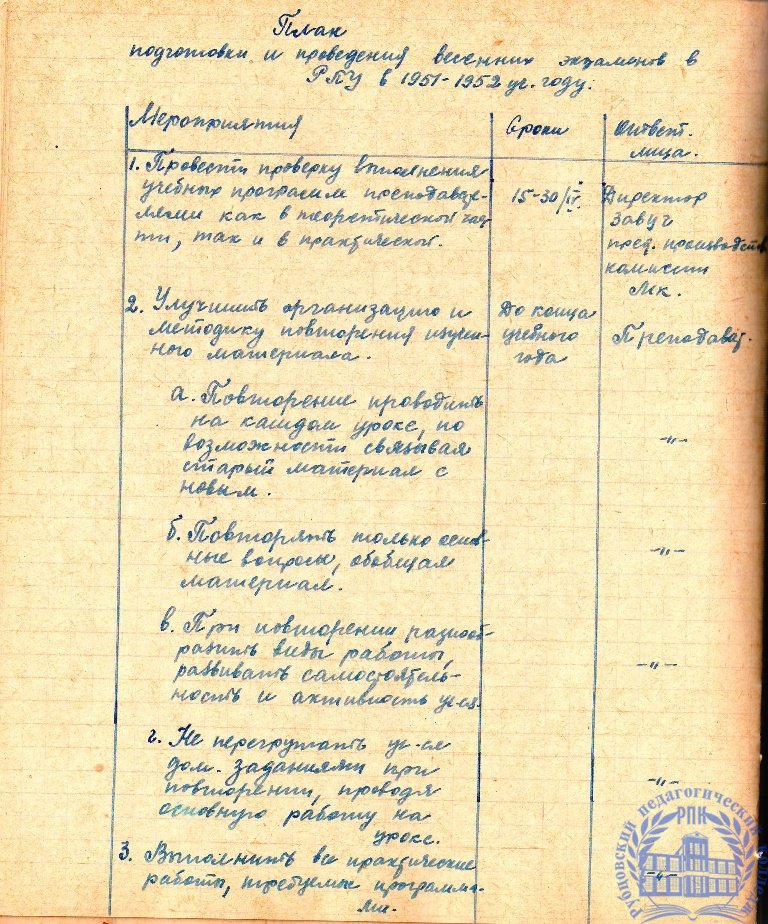 План
подготовки и проведения весенних экзаменов в
РПУ в 1951-1952 уч. году.
Мероприятия
Сроки
Ответст.
лица.
1. Провести проверку выполнения
учебных программ преподавате-
лями как в теоретической час-
ти, так и в практической.
15-30/IV.
Директор
Завуч
пред. производств
комиссии
МК.
2. Улучшить организацию и
методику повторения изучен-
ного материала.
До конца
учебного
года
Преподават.
а. Повторение проводить
на каждом уроке, по
возможности связывая
старый материал с
новым.
-"-
б. Повторять только основ-
ные вопросы, обобщая
материал.
-"-
в. При повторении разнооб-
разить виды работы,
развивать самостоятель-
ность и активность уч-ся.
-"-
г. Не перегружать уч-ся
дом. заданиями при
повторении, проводя
основную работу на
уроке.
-"-
3. Выполнить все практические
работы, требуемые программа-
ми.
-"-
Рубцовский педагогический колледж
РПК